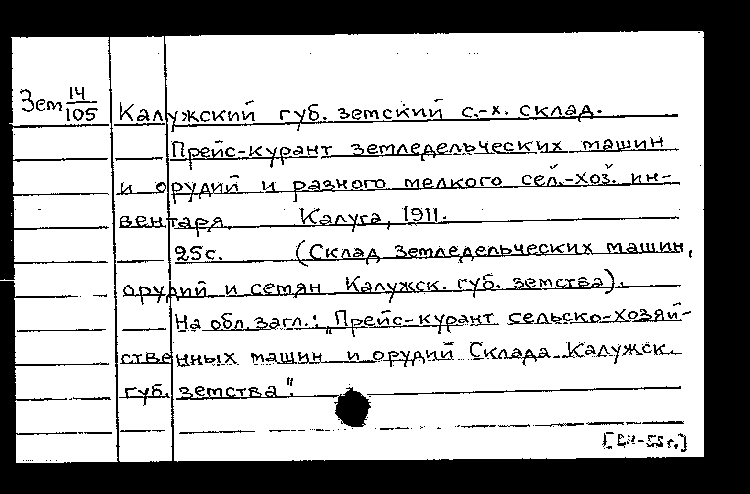 Зем 14/105 Калужский губ. земский с.-х. склад.
Прейс-курант земледельческих машин
и орудий и разного мелкого сел.-хоз. ин-
вентаря. Калуга, 1911.
25с. (Склад земледельческих машин,
орудий и семян Калужск. губ. земства).
На обл. загл.: „Прейс-курант сельско-хозяй-
ственных машин и орудий Склада Калужск.
губ. земства".